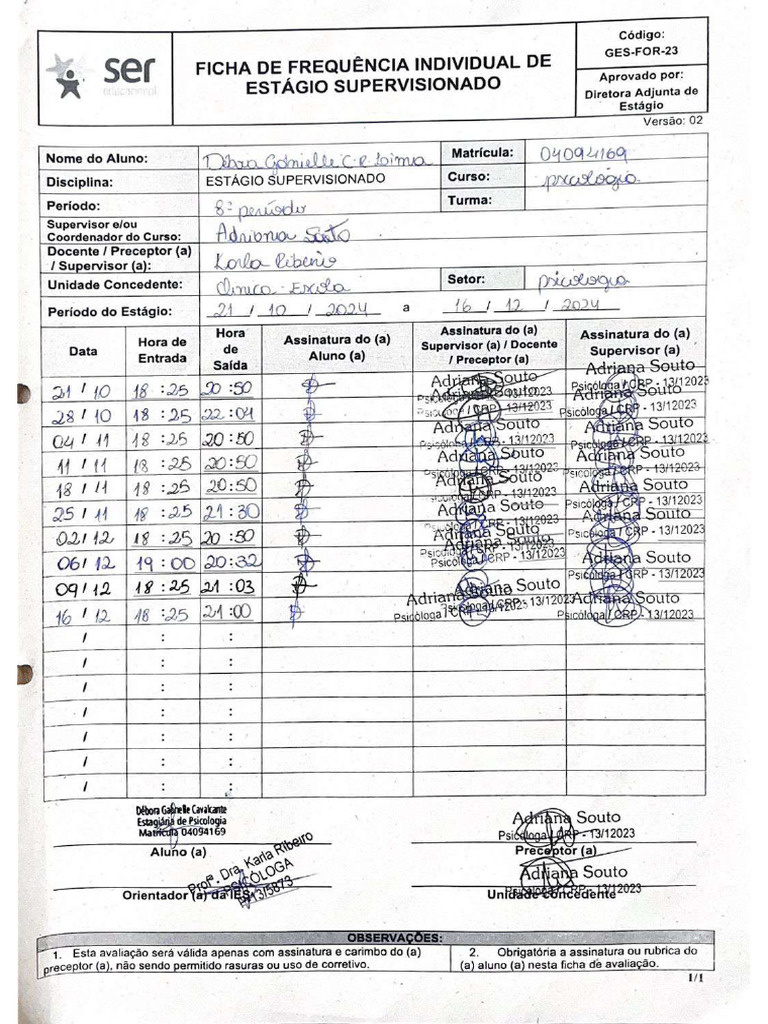 ser
educacional
FICHA DE FREQUÊNCIA INDIVIDUAL DE
ESTÁGIO SUPERVISIONADO
Código:
GES-FOR-23
Aprovado por:
Diretora Adjunta de
Estágio
Versão: 02
Nome do Aluno: Débora Gabrielle C. R. Matrícula: 04094169
Disciplina: ESTÁGIO SUPERVISIONADO Curso: psicologia
Período: 8º período Turma:
Supervisor e/ou
Coordenador do Curso: Adriana Souto
Docente / Preceptor (a)
/ Supervisor (a): Karla Ribeiro
Unidade Concedente: Clínica - Escola Setor: psicologia
Período do Estágio: 21 / 10 / 2024 a 16 / 12 / 2024
Data Hora de Entrada Hora de Saída Assinatura do (a) Aluno (a) Assinatura do (a) Supervisor (a) / Docente / Preceptor (a) Assinatura do (a) Supervisor (a)
21 / 10 18 : 25 20 : 50 Adriana Souto Psicóloga / CRP - 13/12023 Adriana Souto Psicóloga / CRP - 13/12023
28 / 10 18 : 25 22 : 04 Adriana Souto Psicóloga / CRP - 13/12023 Adriana Souto Psicóloga / CRP - 13/12023
04 / 11 18 : 25 20 : 50 Adriana Souto Psicóloga / CRP - 13/12023 Adriana Souto Psicóloga / CRP - 13/12023
11 / 11 18 : 25 20 : 50 Adriana Souto Psicóloga / CRP - 13/12023 Adriana Souto Psicóloga / CRP - 13/12023
18 / 11 18 : 25 20 : 50 Adriana Souto Psicóloga / CRP - 13/12023 Adriana Souto Psicóloga / CRP - 13/12023
25 / 11 18 : 25 21 : 30 Adriana Souto Psicóloga / CRP - 13/12023 Adriana Souto Psicóloga / CRP - 13/12023
02 / 12 18 : 25 20 : 50 Adriana Souto Psicóloga / CRP - 13/12023
06 / 12 19 : 00 20 : 32 Adriana Souto Psicóloga / CRP - 13/12023 Adriana Souto Psicóloga / CRP - 13/12023
09 / 12 18 : 25 21 : 03 Adriana Souto Psicóloga / CRP - 13/12023 Adriana Souto
16 / 12 18 : 25 21 : 00 Adriana Souto Psicóloga / CRP - 13/12023 Psicóloga / CRP - 13/12023
/ : :
/ : :
/ : :
/ : :
/ : :
/ : :
/ : :
Débora Gabrielle Cavalcante
Estagiária de Psicologia
Matrícula 04094169
Aluno (a)
Adriana Souto
Psicóloga / CRP - 13/12023
Preceptor (a)
Profª. Dra. Karla Ribeiro
PSICÓLOGA
13/5873
Orientador (a) da IES
Adriana Souto
Psicóloga / CRP - 13/12023
Unidade concedente
OBSERVAÇÕES:
1. Esta avaliação será válida apenas com assinatura e carimbo do (a)
preceptor (a), não sendo permitido rasuras ou uso de corretivo.
2. Obrigatória a assinatura ou rubrica do
(a) aluno (a) nesta ficha de avaliação.
1/1